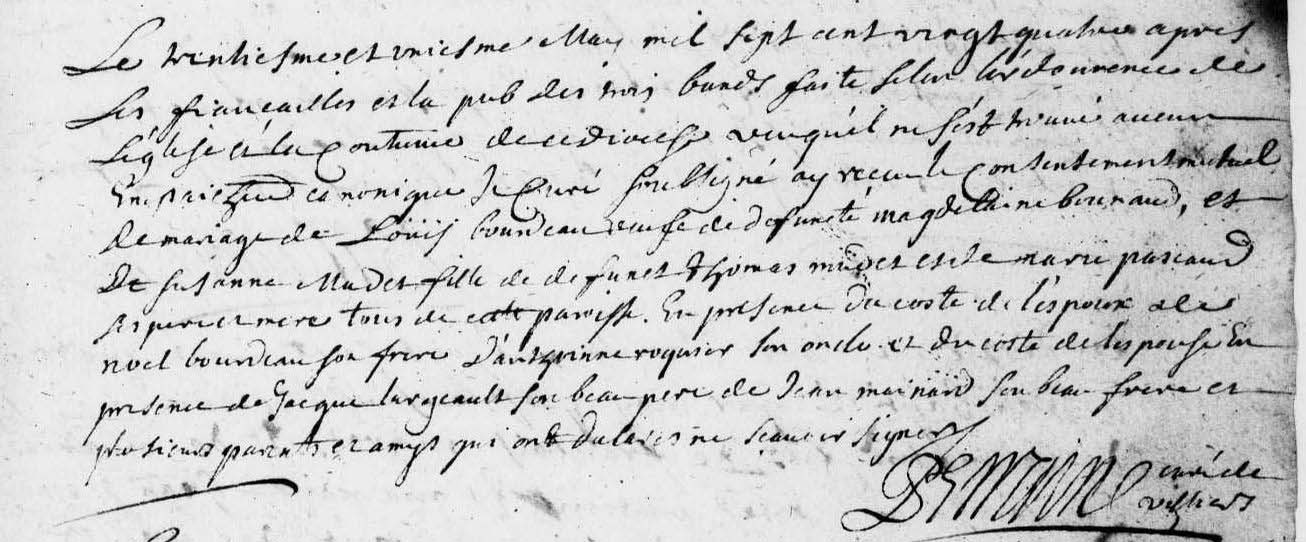 Le trentiesme et uniesme May mil sept cent vingt quatre apres
les fiancailles et la pub des trois bands faite selon l'ordonnence de
l'églisé et la Coutume de ce diocese veu qu'il ne s'est trouvé aucun
Enpaichend canonique Je Curé soubsigné ay receu le Consentement mutuel
de mariage de Louis bourdeau veufe de defuncte magdelaine bounaud, et
De susanne Mudet fille de defunct thomas mudet et de marie pascaud
ses pere et mere tous de cette paroisse. En presence du coste de l'espoux de
noel bourdeau son frere D'anthoinne roquier son oncle et du coste de l'espouse En
presence de Jacque largeault son beau pere de Jean mainard son beau frere et
plusieurs parents et amys qui ont declarés ne scavoir signer
curé de
villiers